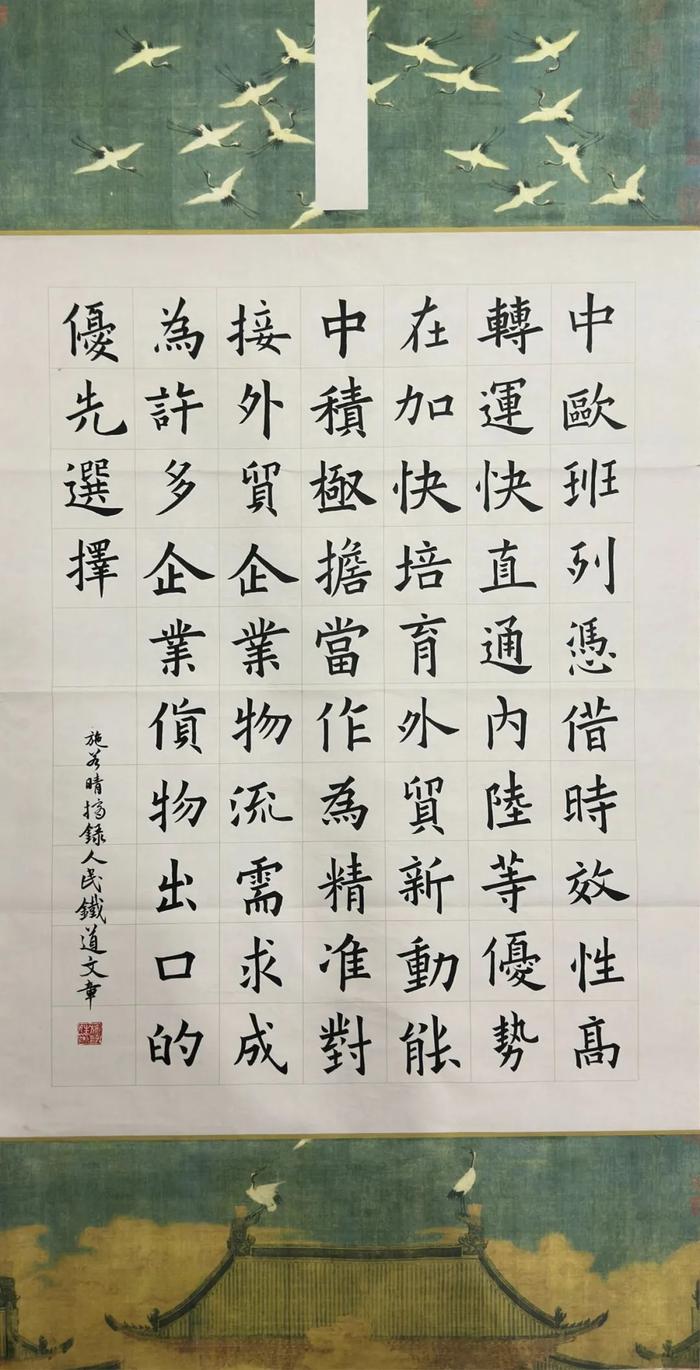 中歐班列憑借時效性高
轉運快直通內陸等優勢
在加快培育外貿新動能
中積極擔當作為精准對
接外貿企業物流需求成
為許多企業貨物出口的
優先選擇
施若晴摘錄人民鐵道文章